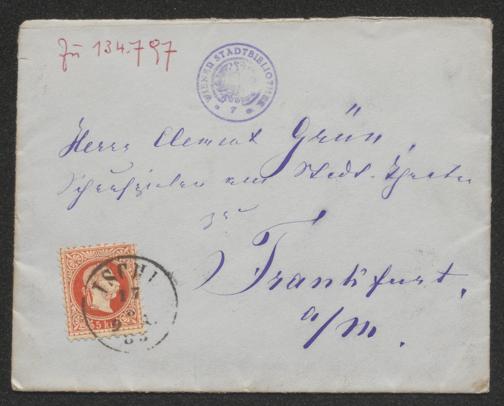 Zu 134.797
WIENER STADTBIBLIOTHEK
7
Herrn Clement Grün,
Schauspieler am Stadt-Theater
zu
Frankfurt,
a/m.
ISCHL
17
83
5 KR